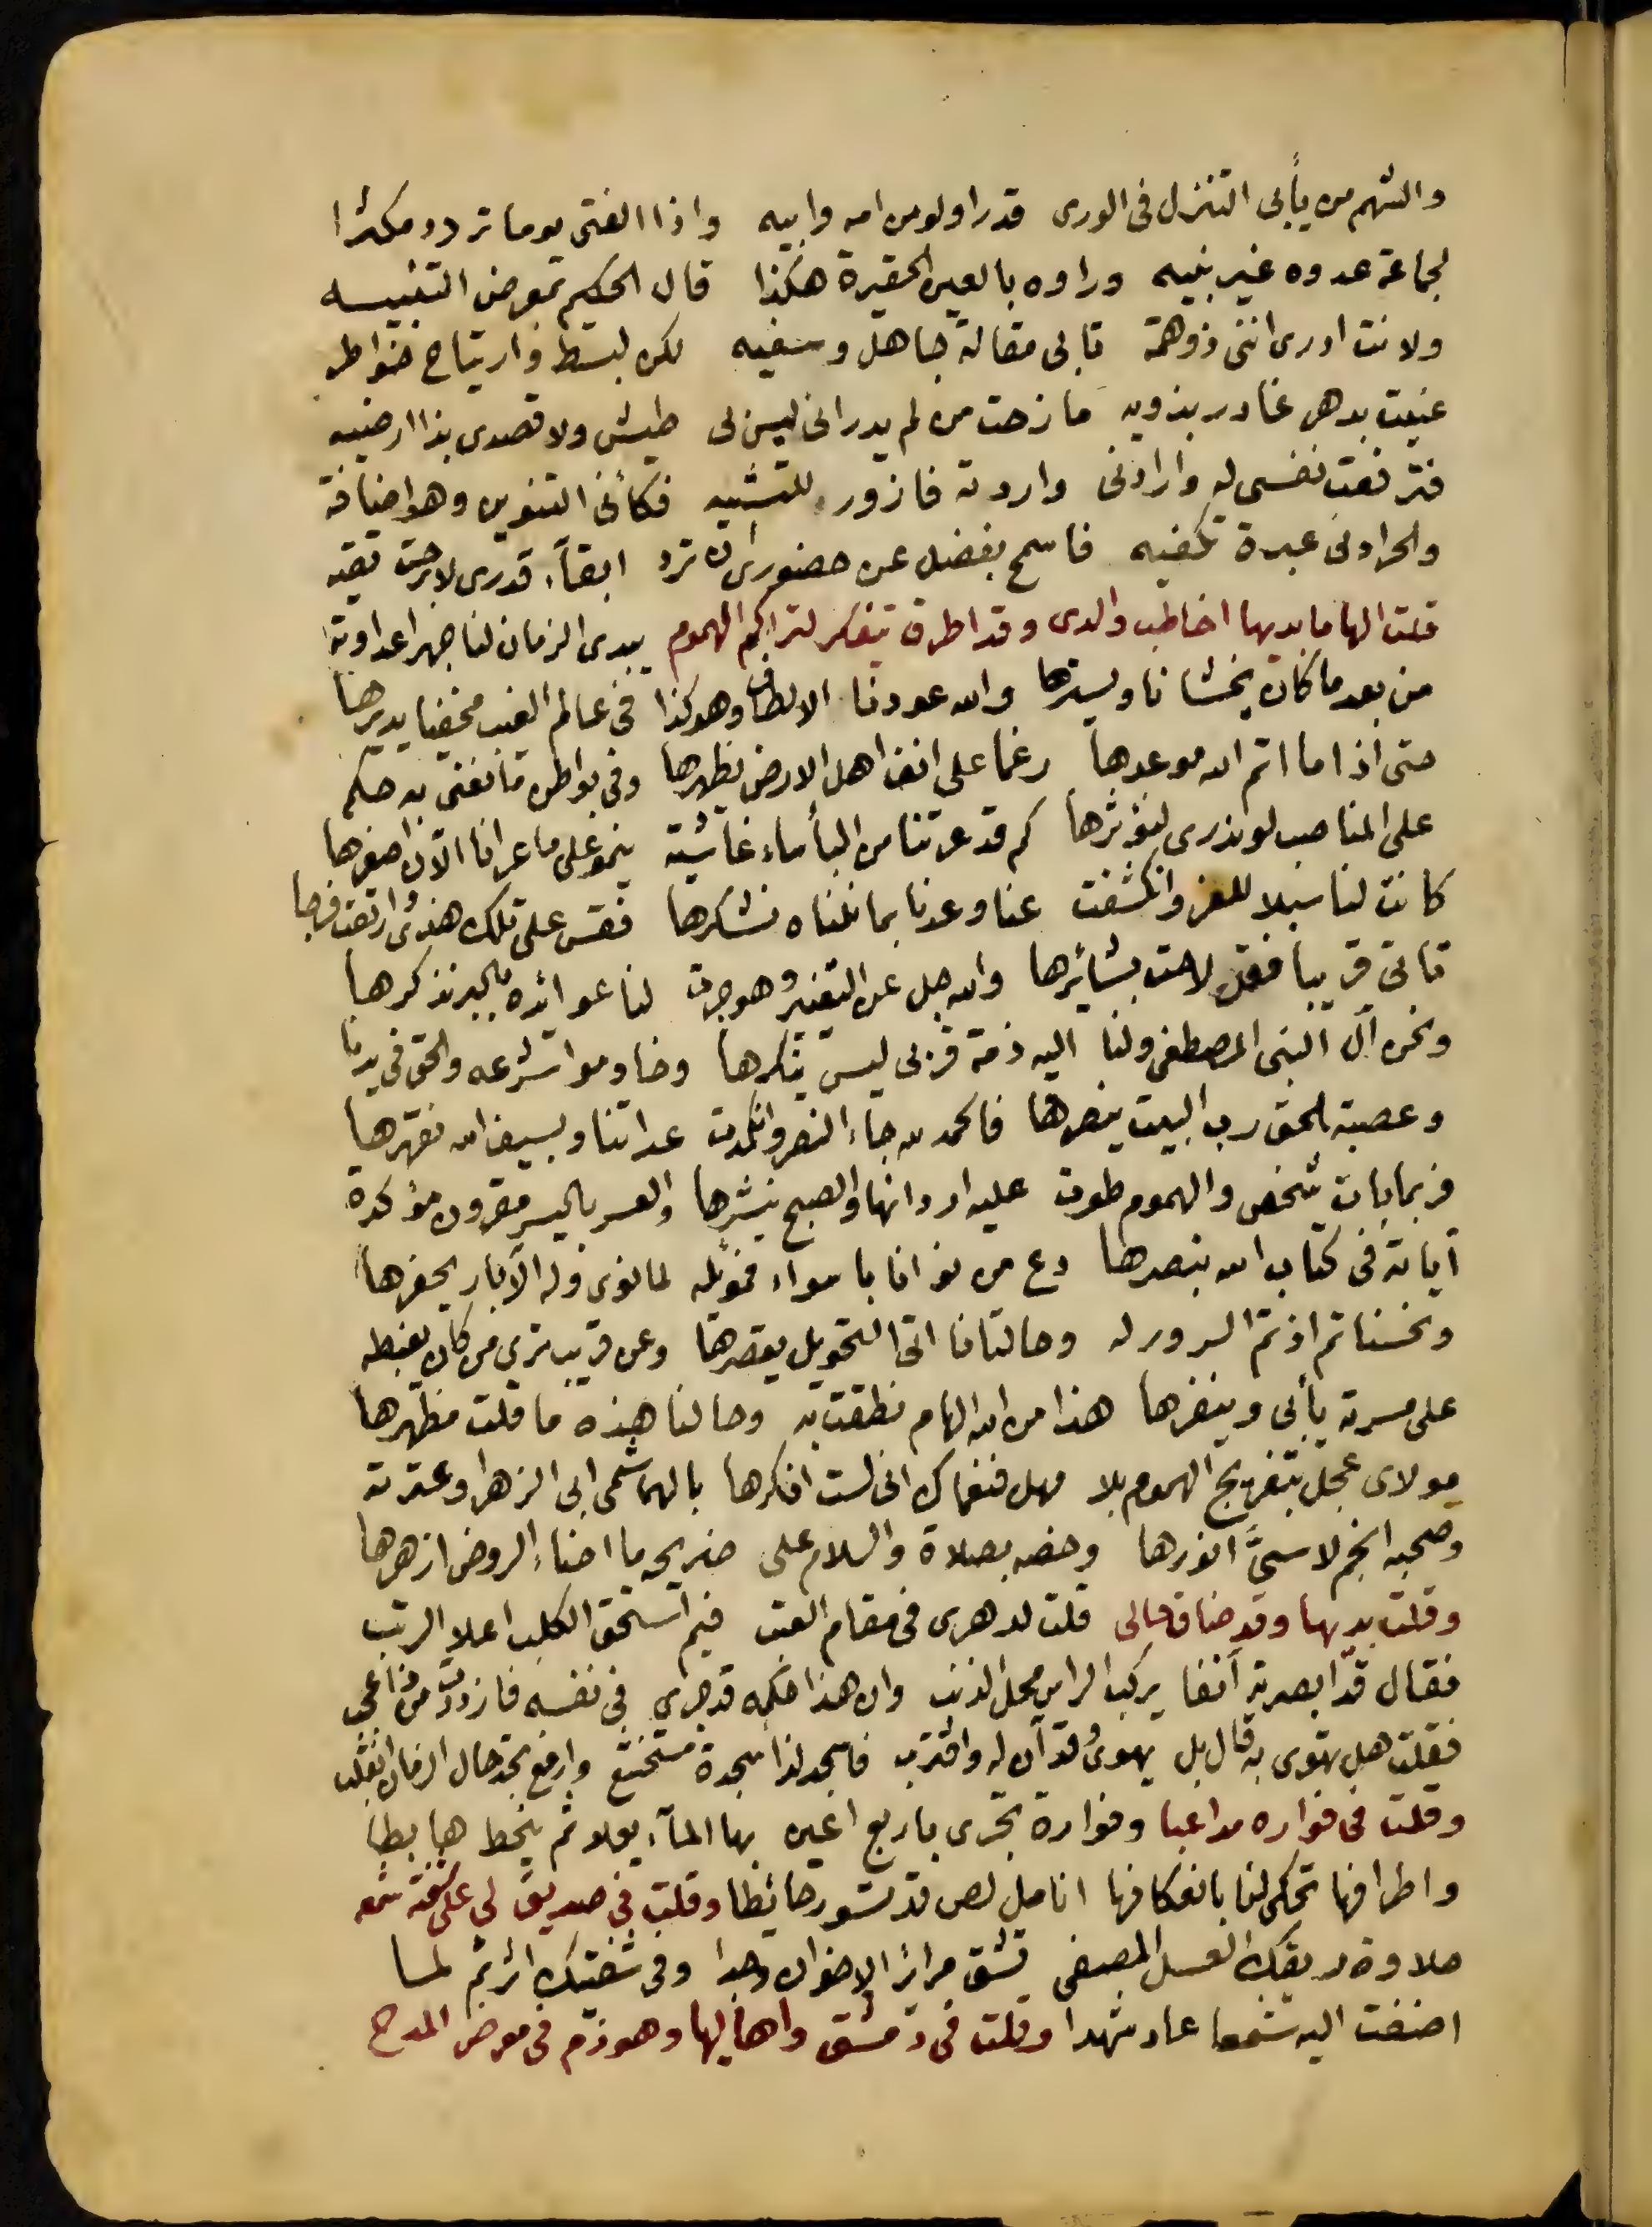 والشهم من يأبى التنزل فى الورى قدرا ولو من امه وابيه واذا الفتى يوما تردد مكثرا
لجماعة عدوه غير نبيه وراوه بالعين الحقيرة هكذا قال الحكيم بمعرض التنبيه
ولانت ادرى اننى ذو همة تابى مقالة جاهل وسفيه لكن لبسط وارتياح خواطر
عنيت بدهر غادر بذويه مازحت من لم يدر انى ليس لى طيش ولا قصدى بذا ارضيه
فترفعت نفسى له وارادنى واردته فازور للتشبيه فكأنى التنوين وهو اضافة
والحر ادنى عبرة تكفيه فاسمح بفضل عن حضورى ان ترد ابقاء قدرى لا برحت تقيه
قلت الهاما بديها اخاطب والدى وقد اطرق يتفكر لتراكم الهموم يبدى الزمان لنا جهرا عداوته
من بعد ما كان يخشانا ويسترها والله عودنا الالطاف وهو كذا فى عالم الغيب مخفيا يدبرها
حتى اذا ما اتم الله موعدها رغما على انف اهل الارض يظهرها وفى بواطن ما نعنى به حكم
على المناصب لو ندرى لنؤثرها كم قد عرتنا من البأساء غاشية ينمو على ما عرانا الآن اصغرها
كانت لنا سبلا للعز وانكشفت عنا وعدنا بما نلناه نشكرها فقس على تلك هذى وارتقب فرجا
تاتى قريبا فقد لاحت بشائرها والله جل عن التغيير وهو جرت لنا عوائده بالجبر نذكرها
ونحن آل النبى المصطفى ولنا اليه ذمة قربى ليس ينكرها وخادموا شرعه والحق فى يدنا
وعصبة الحق رب البيت ينصرها فالحمد لله جاء النصر وانكمدت عداتنا وبسيف الله نقهرها
فربما بات شخص والهموم طوت عليه اردانها والصبح ينشرها والعسر باليسر مقرون مؤكدة
آياته فى كتاب الله نبصرها دع من نوانا باسواء فموئله لما نوى وله الآبار يحفرها
ونحسنا تم اذ تم السرور له وحالتانا اتى التحويل يقصرها وعن قريب ترى من كان يغبطه
على مسرته يأبى وينفرها هذا من الله الهام نطقت به وحالنا هذه ما قلت مظهرها
مولاى عجل بتفريج الهموم بلا مهل فنعماك انى لست انكرها بالهاشمى ابى الزهرا وعترته
وصحبه انجم لا سيَّ انورها وخصه بصلاة والسلام على ضريحه ما اضاء الروض ازهرها
وقلت بديها وقد ضاق حالى قلت لدهرى فى مقام العتب فيم استحق الكلب اعلا الرتب
فقال قد ابصرته آنفا يركب الراس محل الذنب وان هذا حكمه قد جرى فى نفسه فازددت من ذا عجب
فقلت هل تهوى به قال بل يهوى وقد آن له واقترب فاسجد لذا سجدة مستخنث وارفع تجد حال الزمان انقلب
وقلت فى فواره مداعبا وفوارة تجرى باربع اعين بها المآء يعلو ثم ينحط هابطا
واطرافها تحكى لنا بانعكافها انامل لص قد تسور حائطا وقلت فى صديق لى على شفته شمعه
حلاوة ريقك العسل المصفى تشق مرائر الاخوان وجدا وفى شفتيك اثر ثم لما
اضفت اليه شمعا عاد شهدا وقلت فى دمشق واهاليها وهو ذم فى معرض المدح